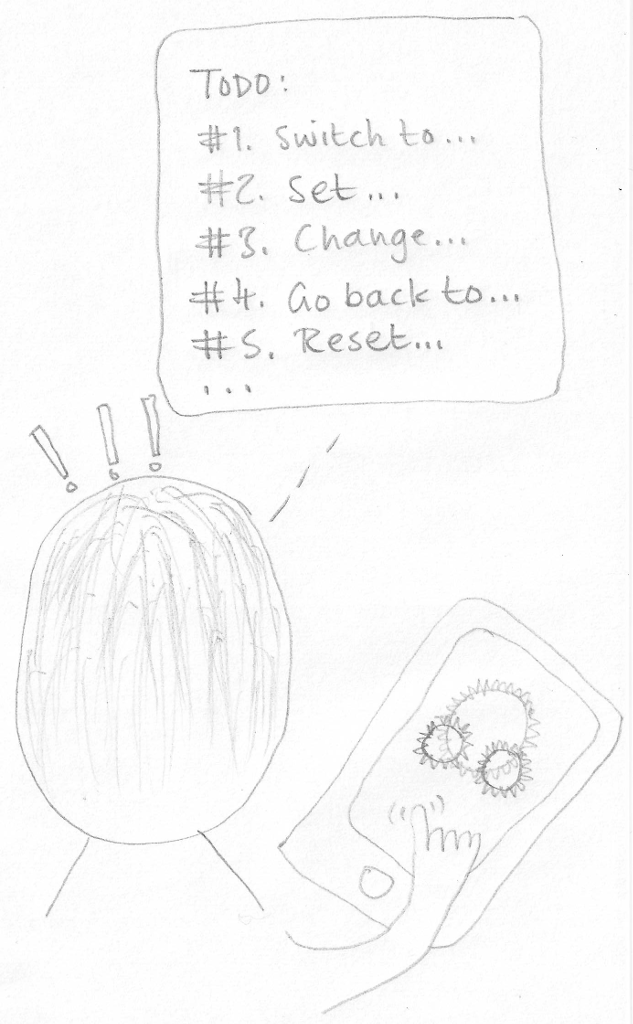 TODO:
#1. Switch to...
#2. Set...
#3. Change...
#4. Go back to...
#5. Reset...
...